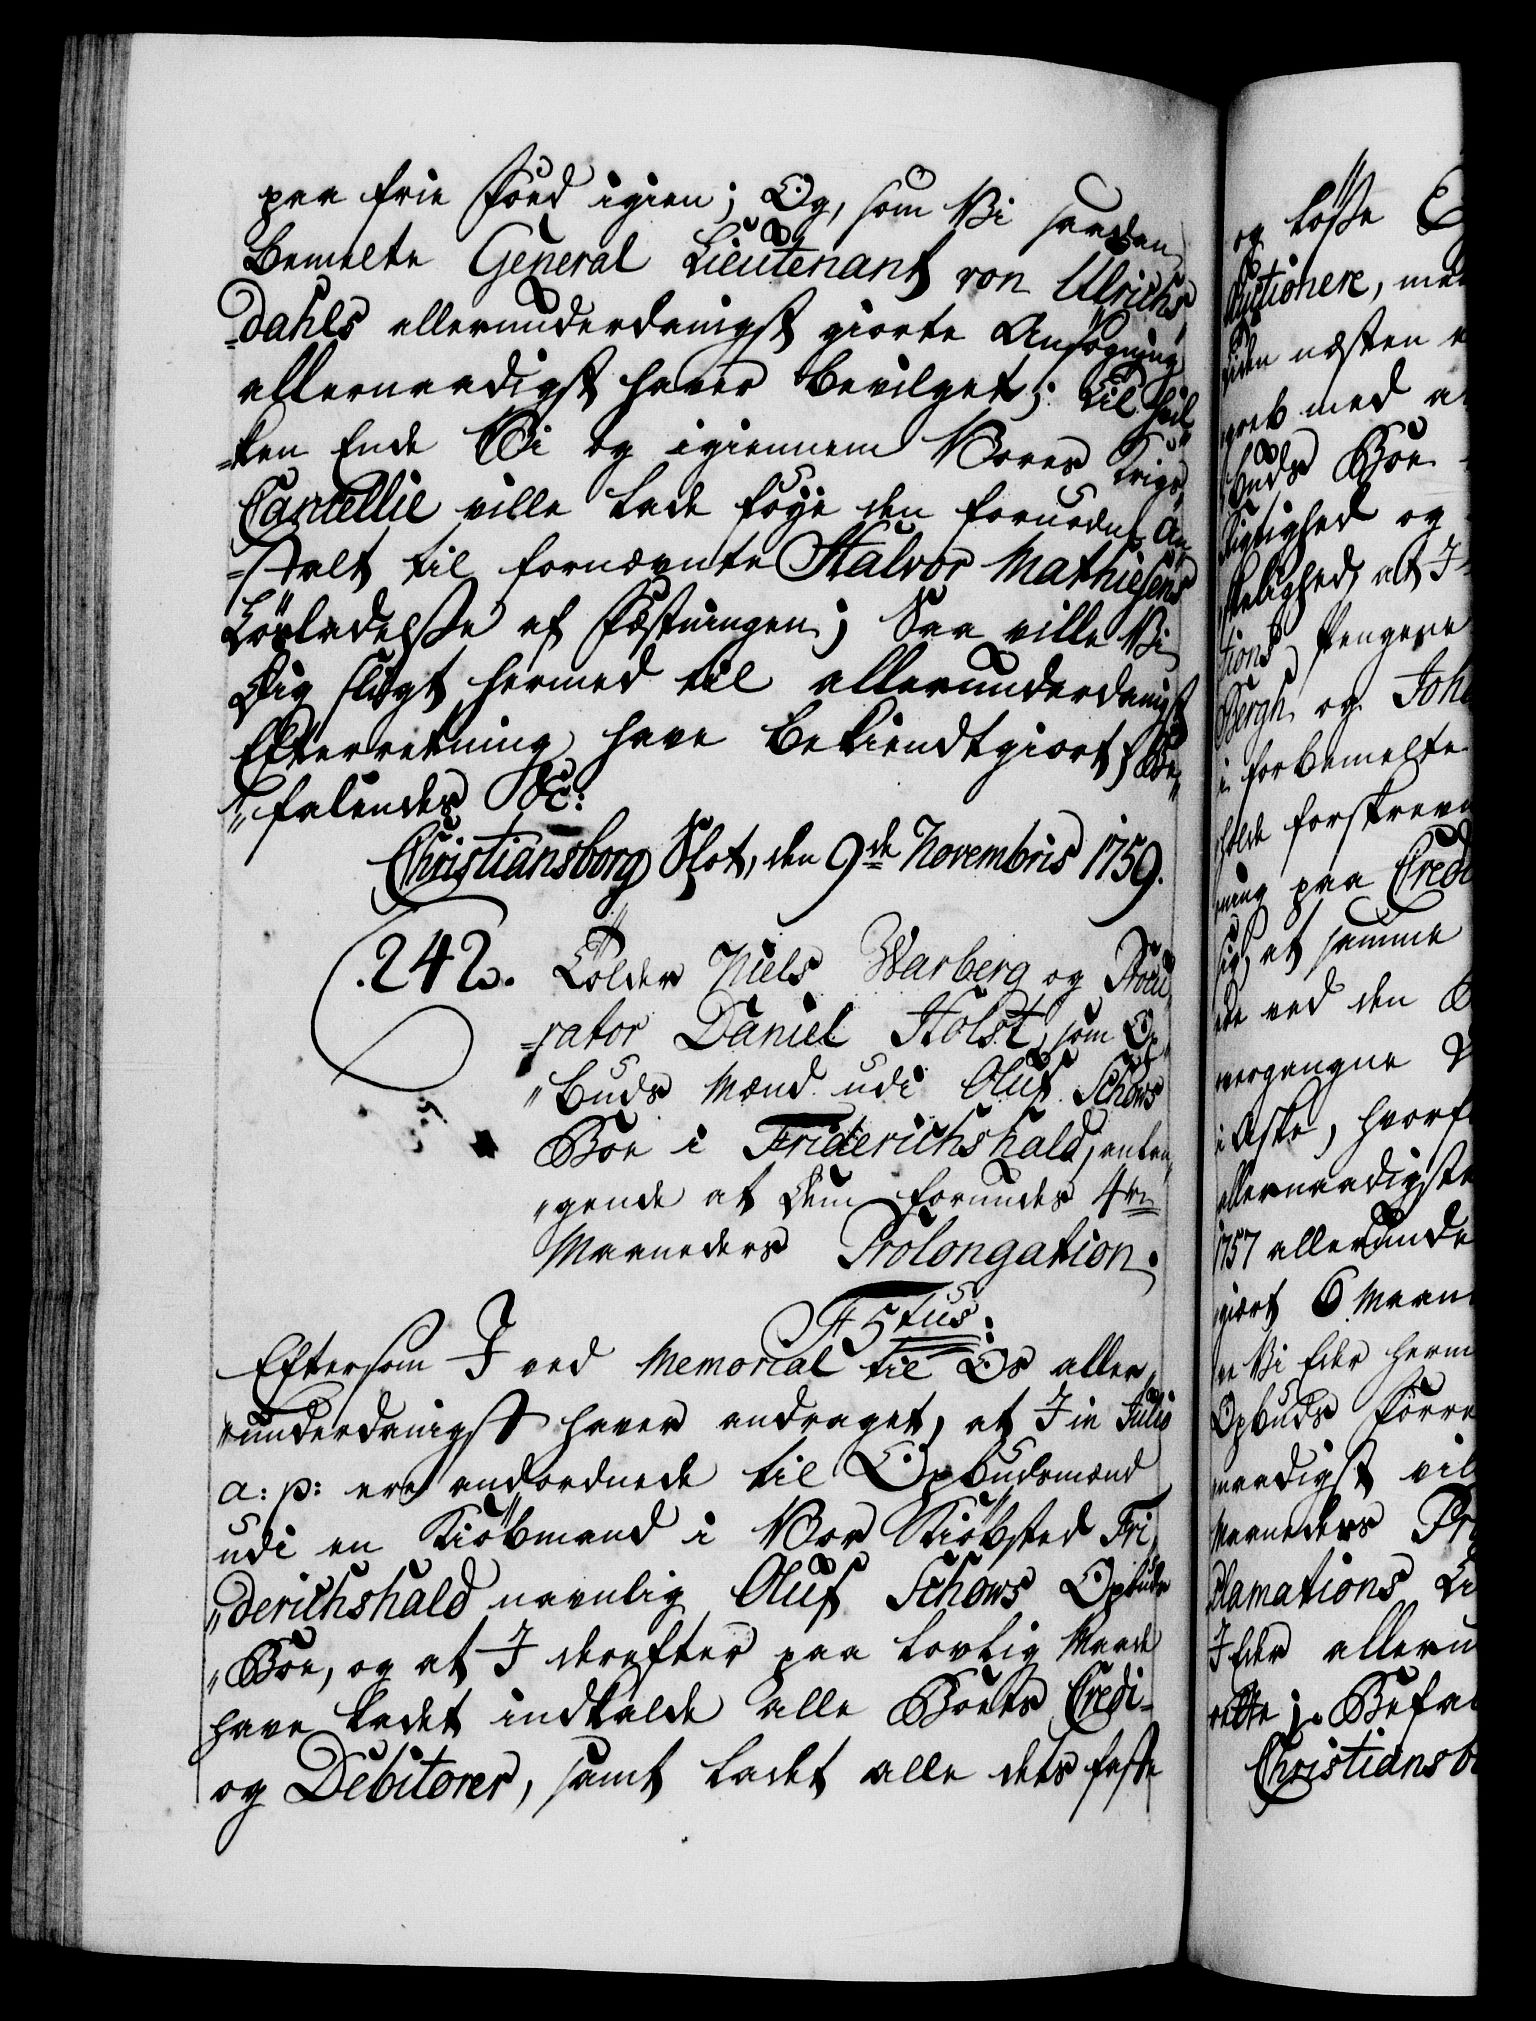 paa frie Foed igien; Og, som Vi saadan
bemelte General Lieutenant von Ulrichs
=dahls allerunderdanigst giorte Ansøgning
allernaadigst haver bevilget; til hvil
=ken Ende Vi og igiennem Vores Krigs
Cancellie ville lade føye den fornødne An
=stalt til fornævnte Halvor Mathiesens
Løsladelse af Fæstningen; Saa ville Vi
Dig sligt hermed til allerunderdanigst
Efterretning have bekiendtgiort; Be
"falendes &c:
Christiansborg Slot, den 9de Novembris 1759.
.242. Tolder Niels Warberg og Procu
=rator Daniel Holst, som Op
"buds Mænd udi Oluf Schows
Boe i Friderichshald, anlan
"gende at Dem forundes 4re
Maaneders Prolongation.
F 5tus:
Eftersom I ved Memorial til Os aller
"underdanigst haver andraget, at I in Julio
a: p: ere andordnede til Opbudsmænd
udi en Kiøbmand i Vor Kiøbsted Fri
"derichshald navnlig Oluf Schows Opbuds
"Boe, og at I derefter paa lovlig Maade
have ladet indkalde alle Boets Credi-
og Debitorer, samt ladet alle dets faste
og løsse
Auctionere, med
siden næsten
med
buds Boe
Rigtighed og
at I
tions Pengene
Bergh og Joh
i forbemelte
holde forskrevn
ning paa Cred
sig, at samme
ved den
vergangne
i Aske, hvorf
allernaadigste
1757 allerunde
giort 6 Maan
Vi Eder herm
Opbuds Forre
naadigst vil
Maaneders Pr
clamations
I Eder alleru
rette; Befal
Christiansb